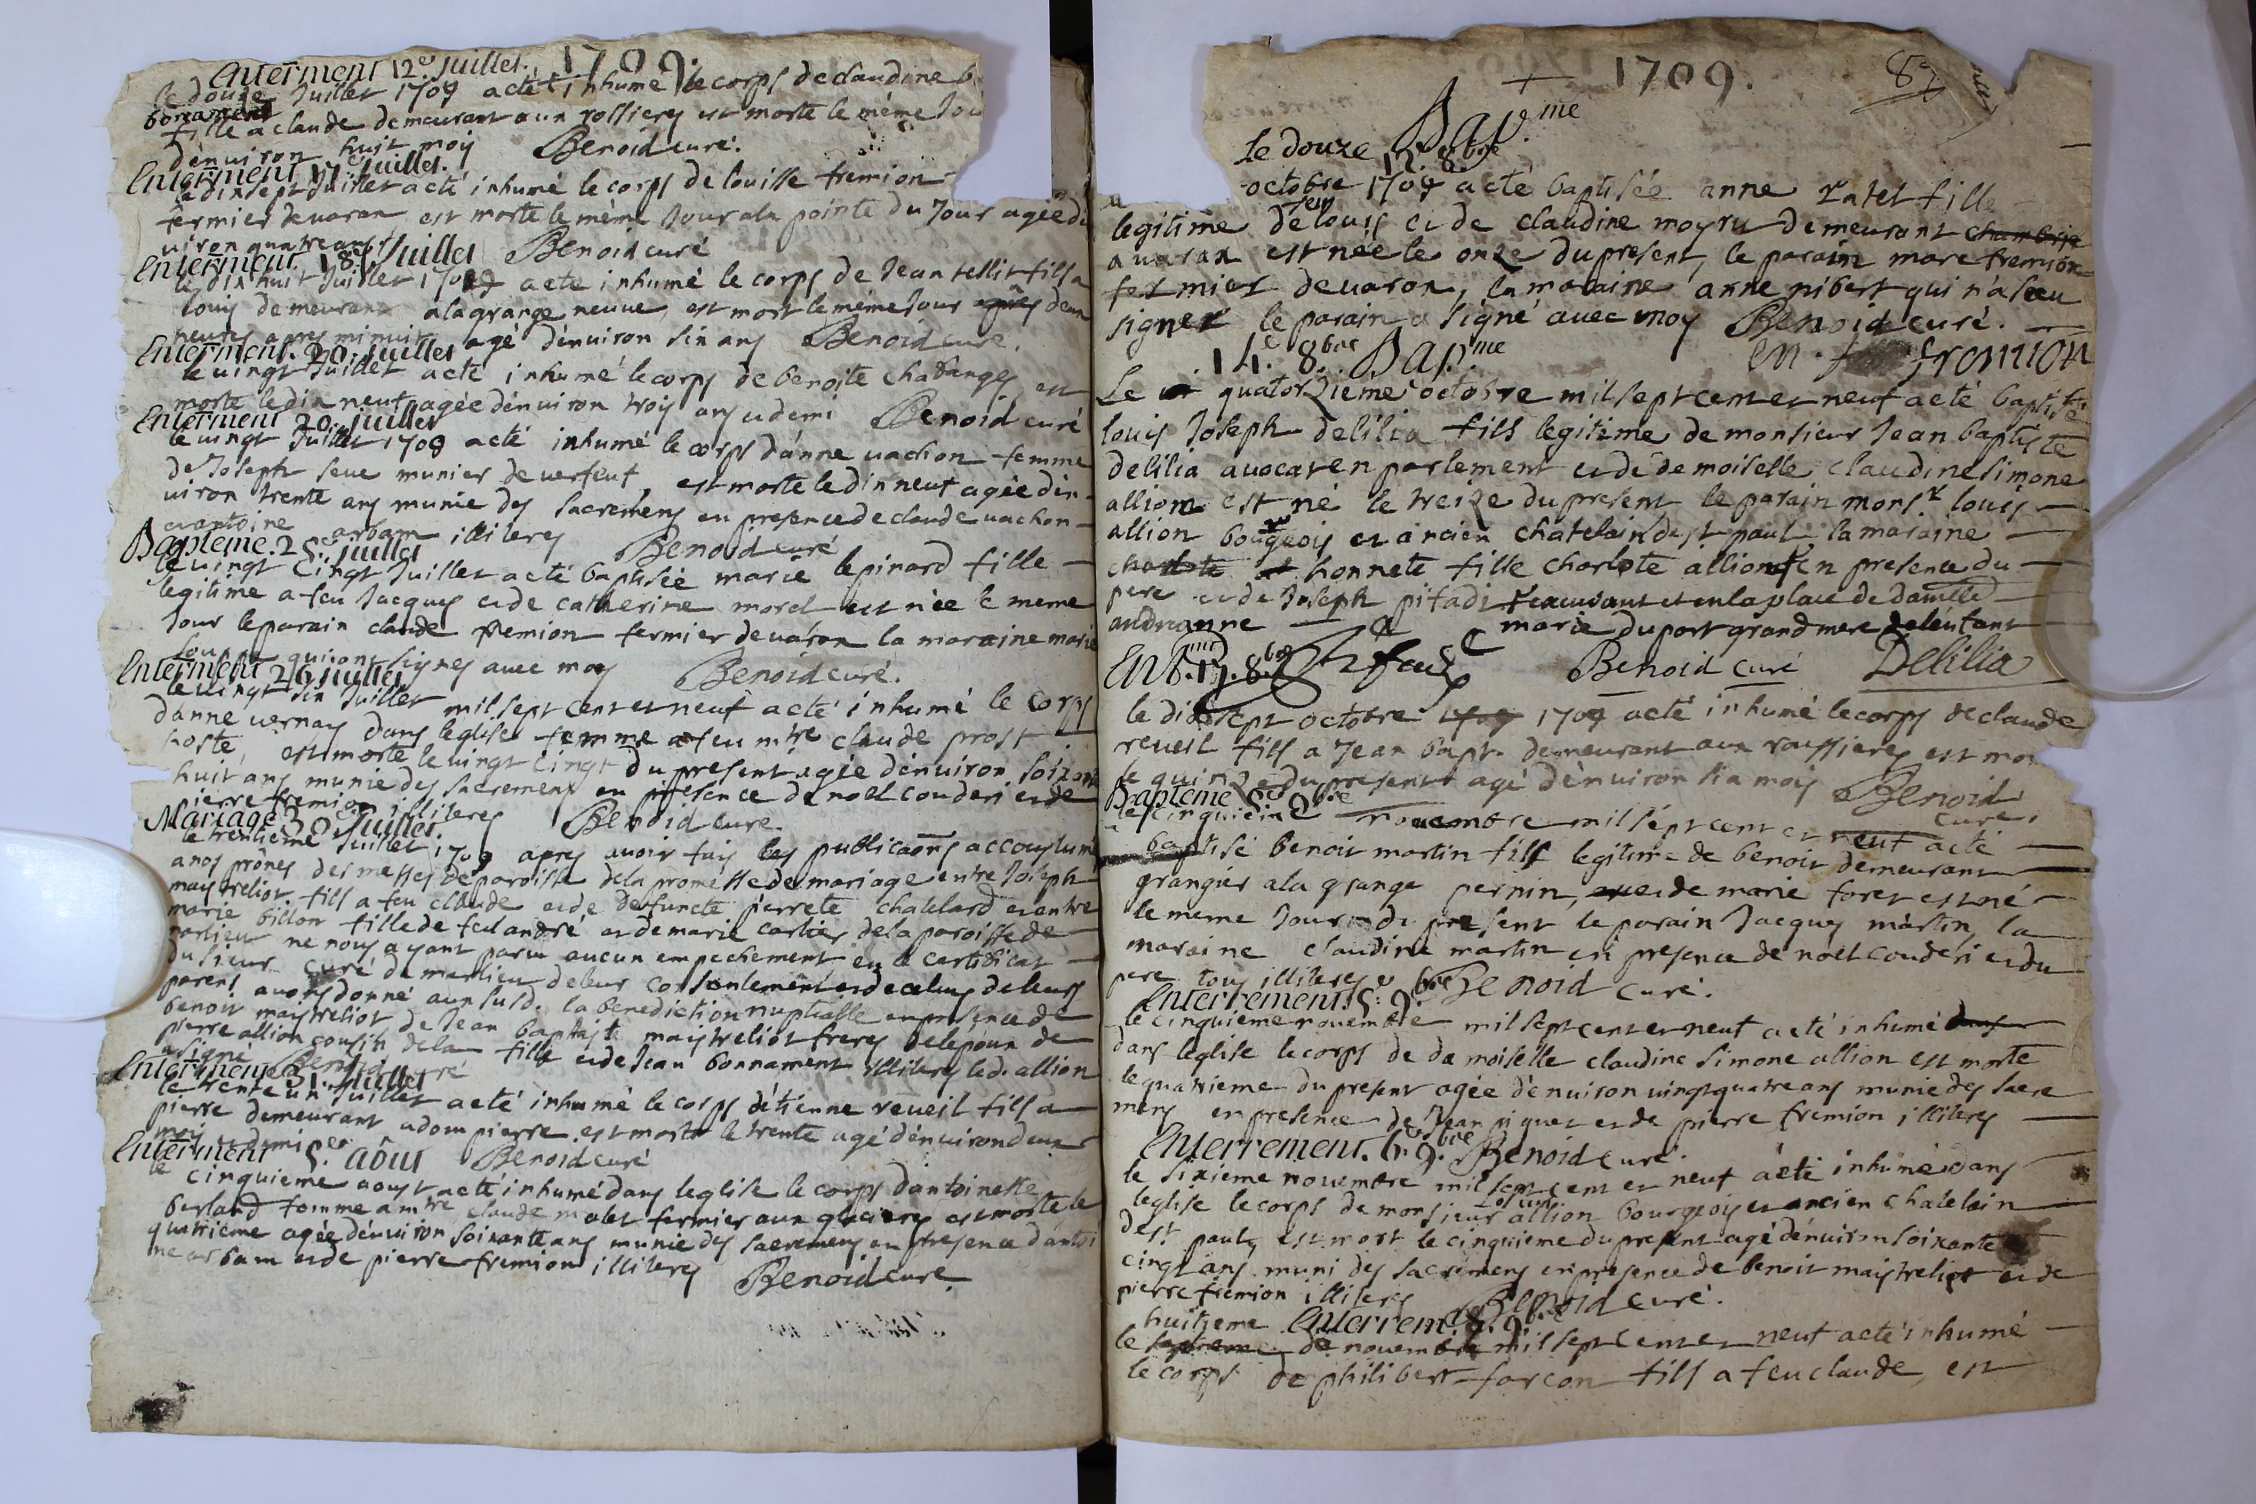 Enterment 12e Juillet. 1709.
le douze Juillet 1709 a eté inhumé le corps de claudine
bonnament
fille a claude demeurant aux rossieres est morte le même Jou
d'enuiron huit moys Benoid curé.
Enterment 17e Juillet.
le dixsept Juillet a eté inhumé le corps de louise fremion
fermier de uaran est morte le même Jour a la pointe du Jour agée d'e
uiron quatre ans Benoid curé
Enterment. 18e Juillet
le dix huit Juillet 1709 a eté inhumé le corps de Jean tellis fils a
louis demeurant a la grange neuue est mort le même Jour
heures apres minuit agé d'enuiron six ans Benoid curé.
Enterment. 20. Juillet
le uingt Juillet a eté inhumé le corps de benoite chabanges est
morte le dix neuf agée d'enuiron trois ans et demi Benoid curé
Enterment 20. Juillet
le uingt Juillet 1709 a eté inhumé le corps d'anne uachon femme
de Joseph seue munier de uerfeut, est morte le dixneuf agée d'en-
uiron trente ans munie des sacremens en presence de claude uachon
et antoine arbam illiteres Benoid curé
Bapteme. 25e Juillet
le uingt cinqt Juillet a eté baptisée marie lepinard fille
legitime a feu Jacques et de catherine morel est née le meme
Jour le parain claude fremion fermier de uaron la maraine marie
qui ont signes auec moy Benoid curé.
Enterment 26 Juillet
le uingt six Juillet mil sept cent et neuf a eté inhumé le corps
d'anne uernay dans l'eglise femme a feu mtre claude prost
hoste, est morte le uingt cinqt du present agée d'enuiron soixante
huit ans munie des sacremens en presence de noel couderi et de
pierre fremion illiteres Benoid curé.
Mariage 30 Juillet.
le trentieme Juillet 1709 apres auoir fait les publicaõns accoutumé
a nos prônes des messes de paroisse de la promesse de mariage entre Joseph
maistreliot fils a feu claude et de defuncte pierrete chatelard et entre
marie billon fille de feu andré et de marie cartier de la paroisse de
marlieu ne nous ayant paru aucun empechement eu le certificat
du sieur curé de marlieu de leur consentement et de celuy de leurs
parens auons donné aux susd. la benediction nuptialle en presence de
benoit maistreliot de Jean baptiste maistreliot freres de l'epoux de
pierre allion cousin de la fille et de Jean bonnament illiteres led. allion
a signé Benoid curé
Enterment 31. Juillet
le trente un Juillet a eté inhumé le corps d'étienne reueil fils a
pierre demeurant a dom pierre est mort le trente agé d'enuiron deux
mois et demi
Enterment 5.e aôut Benoid curé
le cinquieme aoust a eté inhumé dans l'eglise le corps d'antoinette
berland femme a mtre claude malet fermier aux glacieres est morte le
quatrieme agée d'enuiron soixante ans munie des sacremens en presence d'antoi
ne arbam et de pierre fremion illiteres Benoid curé
1709.
87
Bap.me
12. 8bre
Le douze
octobre 1709 a eté baptisée anne ratet fille
legitime de feu louis et de claudine moyru demeurant chambrie
a uaran est née le onze du present, le parain marc fremion
fermier de uaron, la maraine anne nibert qui n'a sceu
signer le parain a signé auec moy Benoid curé.
fromion
14.e 8.bre Bap.me
Le quatorzieme octobre mil sept cent et neuf a eté baptisé
louis Joseph delilia fils legitime de monsieur Jean baptiste
delilia auocat en parlement et de demoiselle claudine simone
allion est né le treize du present le parain monsr louis
allion bourgeois et ancien chatelain de st paul la maraine
honnete fille charlote allion en presence du
pere et de Joseph pitadi et en la place de damlle
andrianne marie duport grand mere de l'enfant
Entmt. 17. 8bre Benoid curé Delilia
le dixsept octobre 1709 1709 a eté inhumé le corps de claude
reueil fils a Jean bapte demeurant aux roussieres est mor
le quinze du present agé d'enuiron six mois Benoid
curé.
Bapteme 5.e 9.bre
le cinquieme nouembre mil sept cent et neuf a eté
baptisé benoit martin fils legitime de benoit demeurant
grangier a la grange pernin, et de marie foret est né
le meme Jour du present le parain Jacques martin, la
maraine claudine martin en presence de noel couderi et du
pere tous illiteres Benoid curé.
Enterrement. 5.e 9.bre
le cinquieme nouembre mil sept cent et neuf a eté inhumé dans
dans l'eglise le corps de damoiselle claudine simone allion est morte
le quatrieme du present agée d'enuiron uingt quatre ans munie des sacre
mens en presence de Jean piquet et de pierre fremion illiteres
Enterrement. 6.e 9.bre Benoid curé.
le sixieme nouembre mil sept cent et neuf a eté inhumé dans
l'eglise le corps de monsieur louis allion bourgeois et ancien chatelain
de st paul, est mort le cinquieme du present agé d'enuiron soixante
cinqt ans muni des sacremens en presence de benoit maistreliot et de
pierre fremion illiteres Benoid curé.
huitieme Enterrem. 8. 9.bre
le septieme de nouembre mil sept cent et neuf a eté inhumé
le corps de philibert farcon fils a feu claude, est